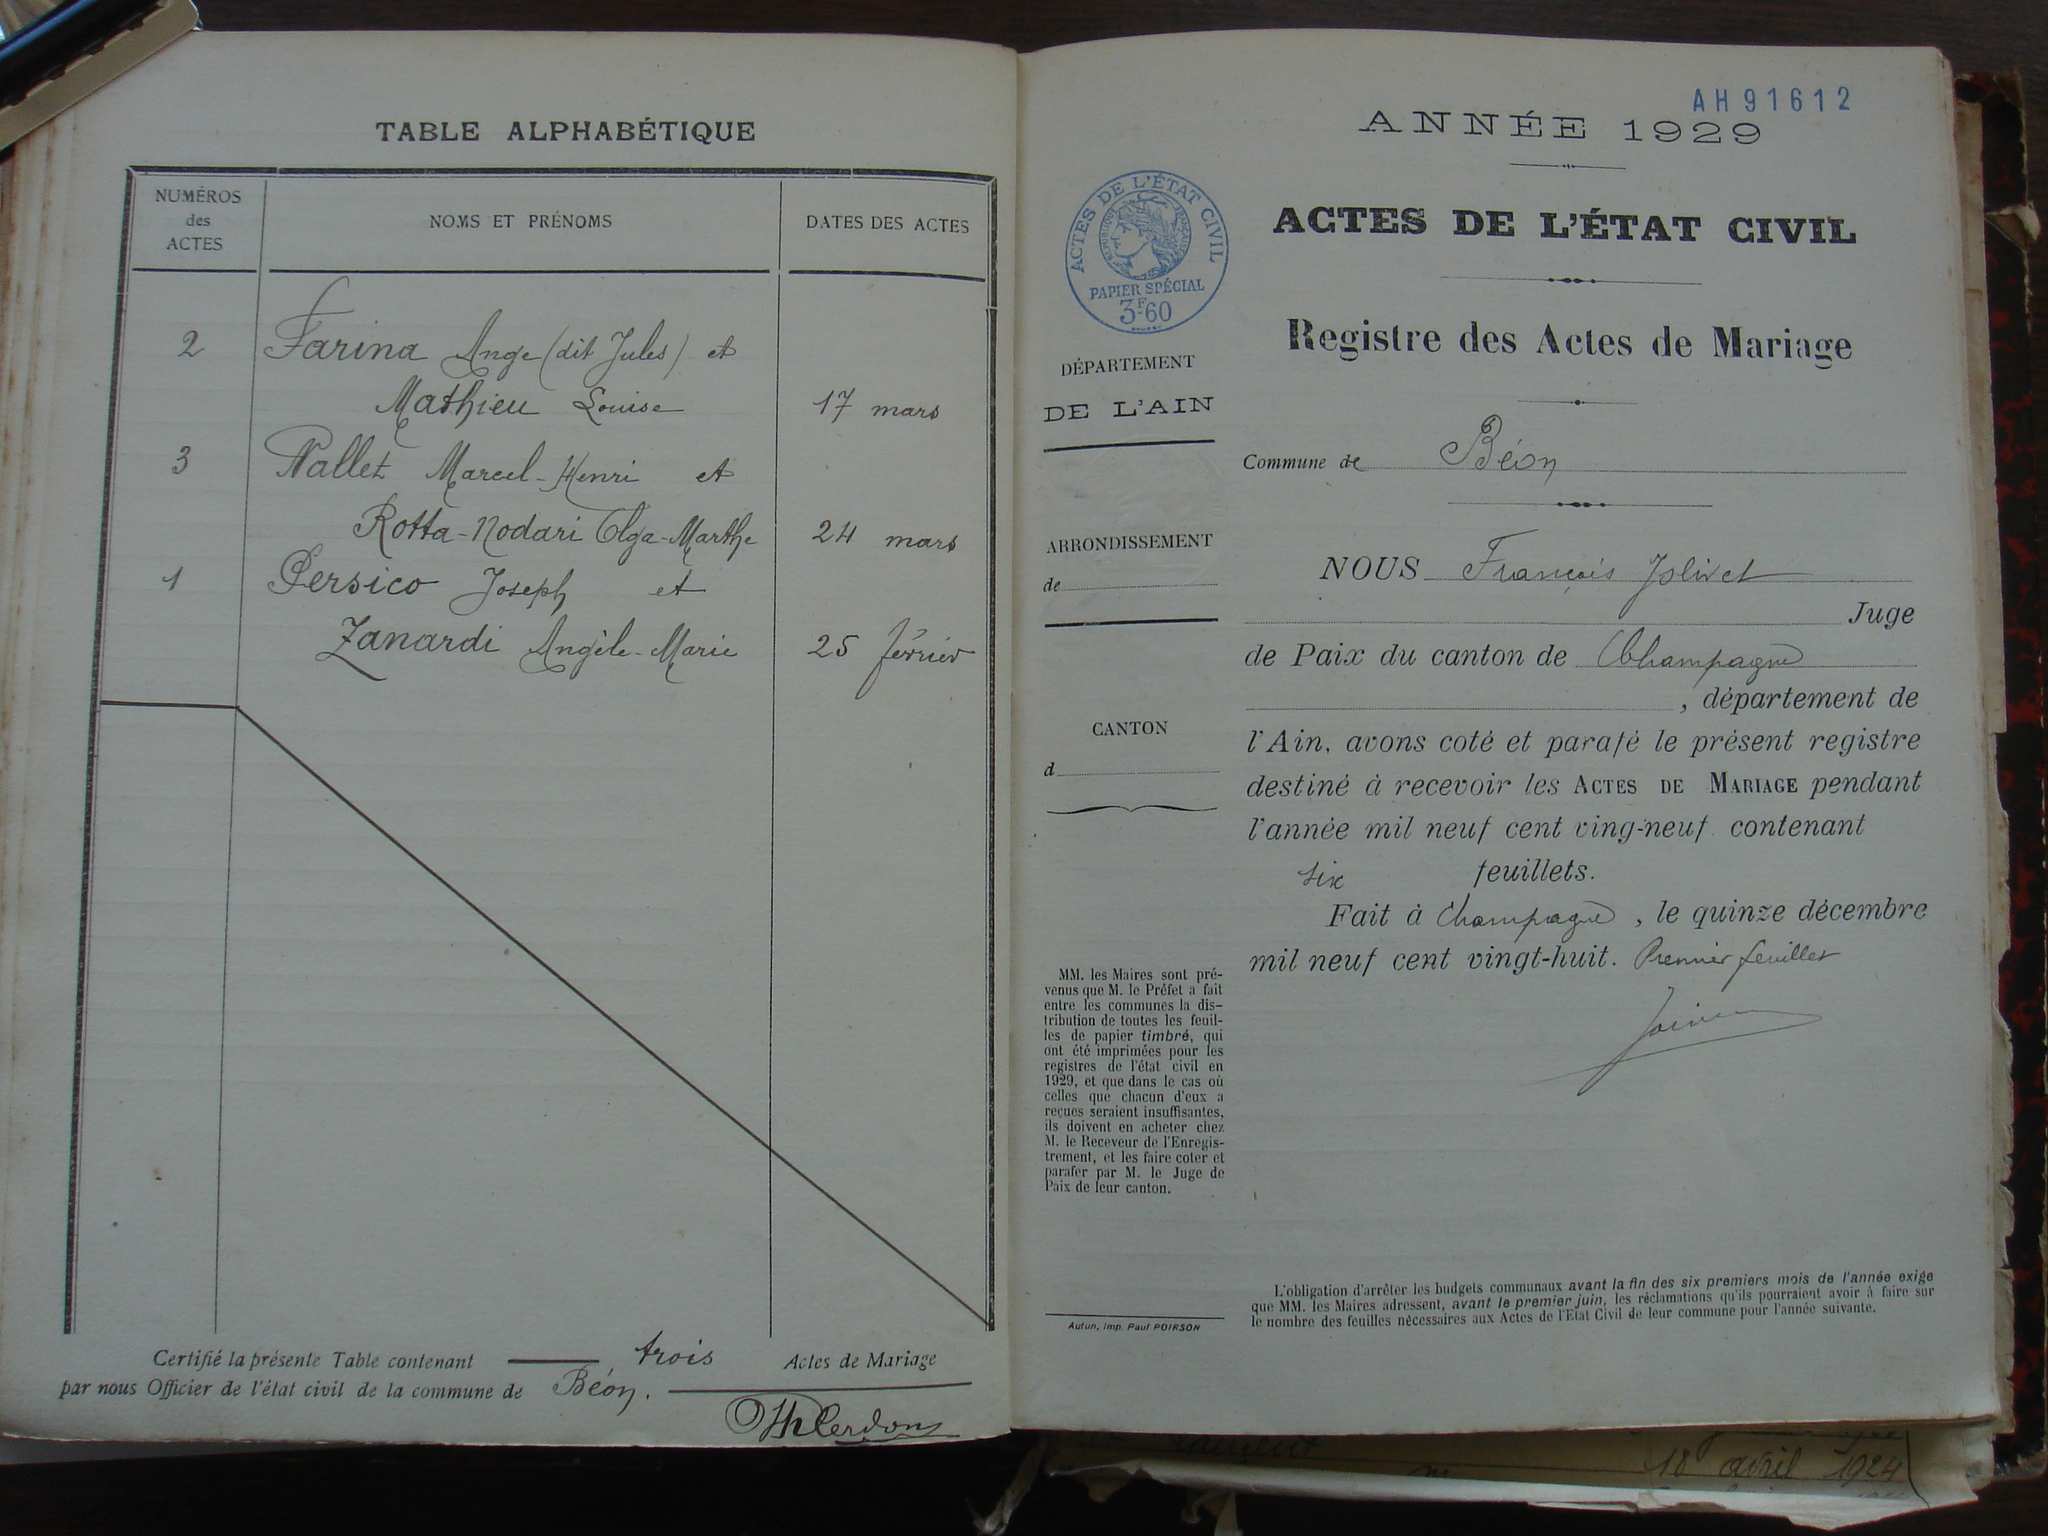 TABLE ALPHABÉTIQUE
NUMÉROS
des
ACTES
NOMS ET PRÉNOMS
DATES DES ACTES
2 Farina Ange (dit Jules) et
Mathieu Louise 17 mars
3 Nallet Marcel-Henri et
Rotta-Nodari Olga-Marthe 24 mars
1 Persico Joseph et
Zanardi Angèle-Marie 25 février
Certifié la présente Table contenant trois Actes de Mariage
par nous Officier de l'état civil de la commune de Béon.
AH91612
ANNÉE 1929
ACTES DE L'ÉTAT CIVIL
RÉPUBLIQUE FRANÇAISE
PAPIER SPÉCIAL
3F60
ACTES DE L'ÉTAT CIVIL
Registre des Actes de Mariage
DÉPARTEMENT
DE L'AIN
ARRONDISSEMENT
de
CANTON
d
MM. les Maires sont pré-
venus que M. le Préfet a fait
entre les communes la dis-
tribution de toutes les feuil-
les de papier timbré, qui
ont été imprimées pour les
registres de l'état civil en
1929, et que dans le cas où
celles que chacun d'eux a
reçues seraient insuffisantes,
ils doivent en acheter chez
M. le Receveur de l'Enregis-
trement, et les faire coter et
parafer par M. le Juge de
Paix de leur canton.
Autun, Imp. Paul POIRSON
Commune de Béon
NOUS François Jolivet
Juge
de Paix du canton de Champagne
, département de
l'Ain, avons coté et parafé le présent registre
destiné à recevoir les ACTES DE MARIAGE pendant
l'année mil neuf cent ving-neuf contenant
six feuillets.
Fait à Champagne, le quinze décembre
mil neuf cent vingt-huit. Premier feuillet
L'obligation d'arrêter les budgets communaux avant la fin des six premiers mois de l'année exige
que MM. les Maires adressent, avant le premier juin, les réclamations qu'ils pourraient avoir à faire sur
le nombre des feuilles nécessaires aux Actes de l'Etat Civil de leur commune pour l'année suivante.
18 avril 1924